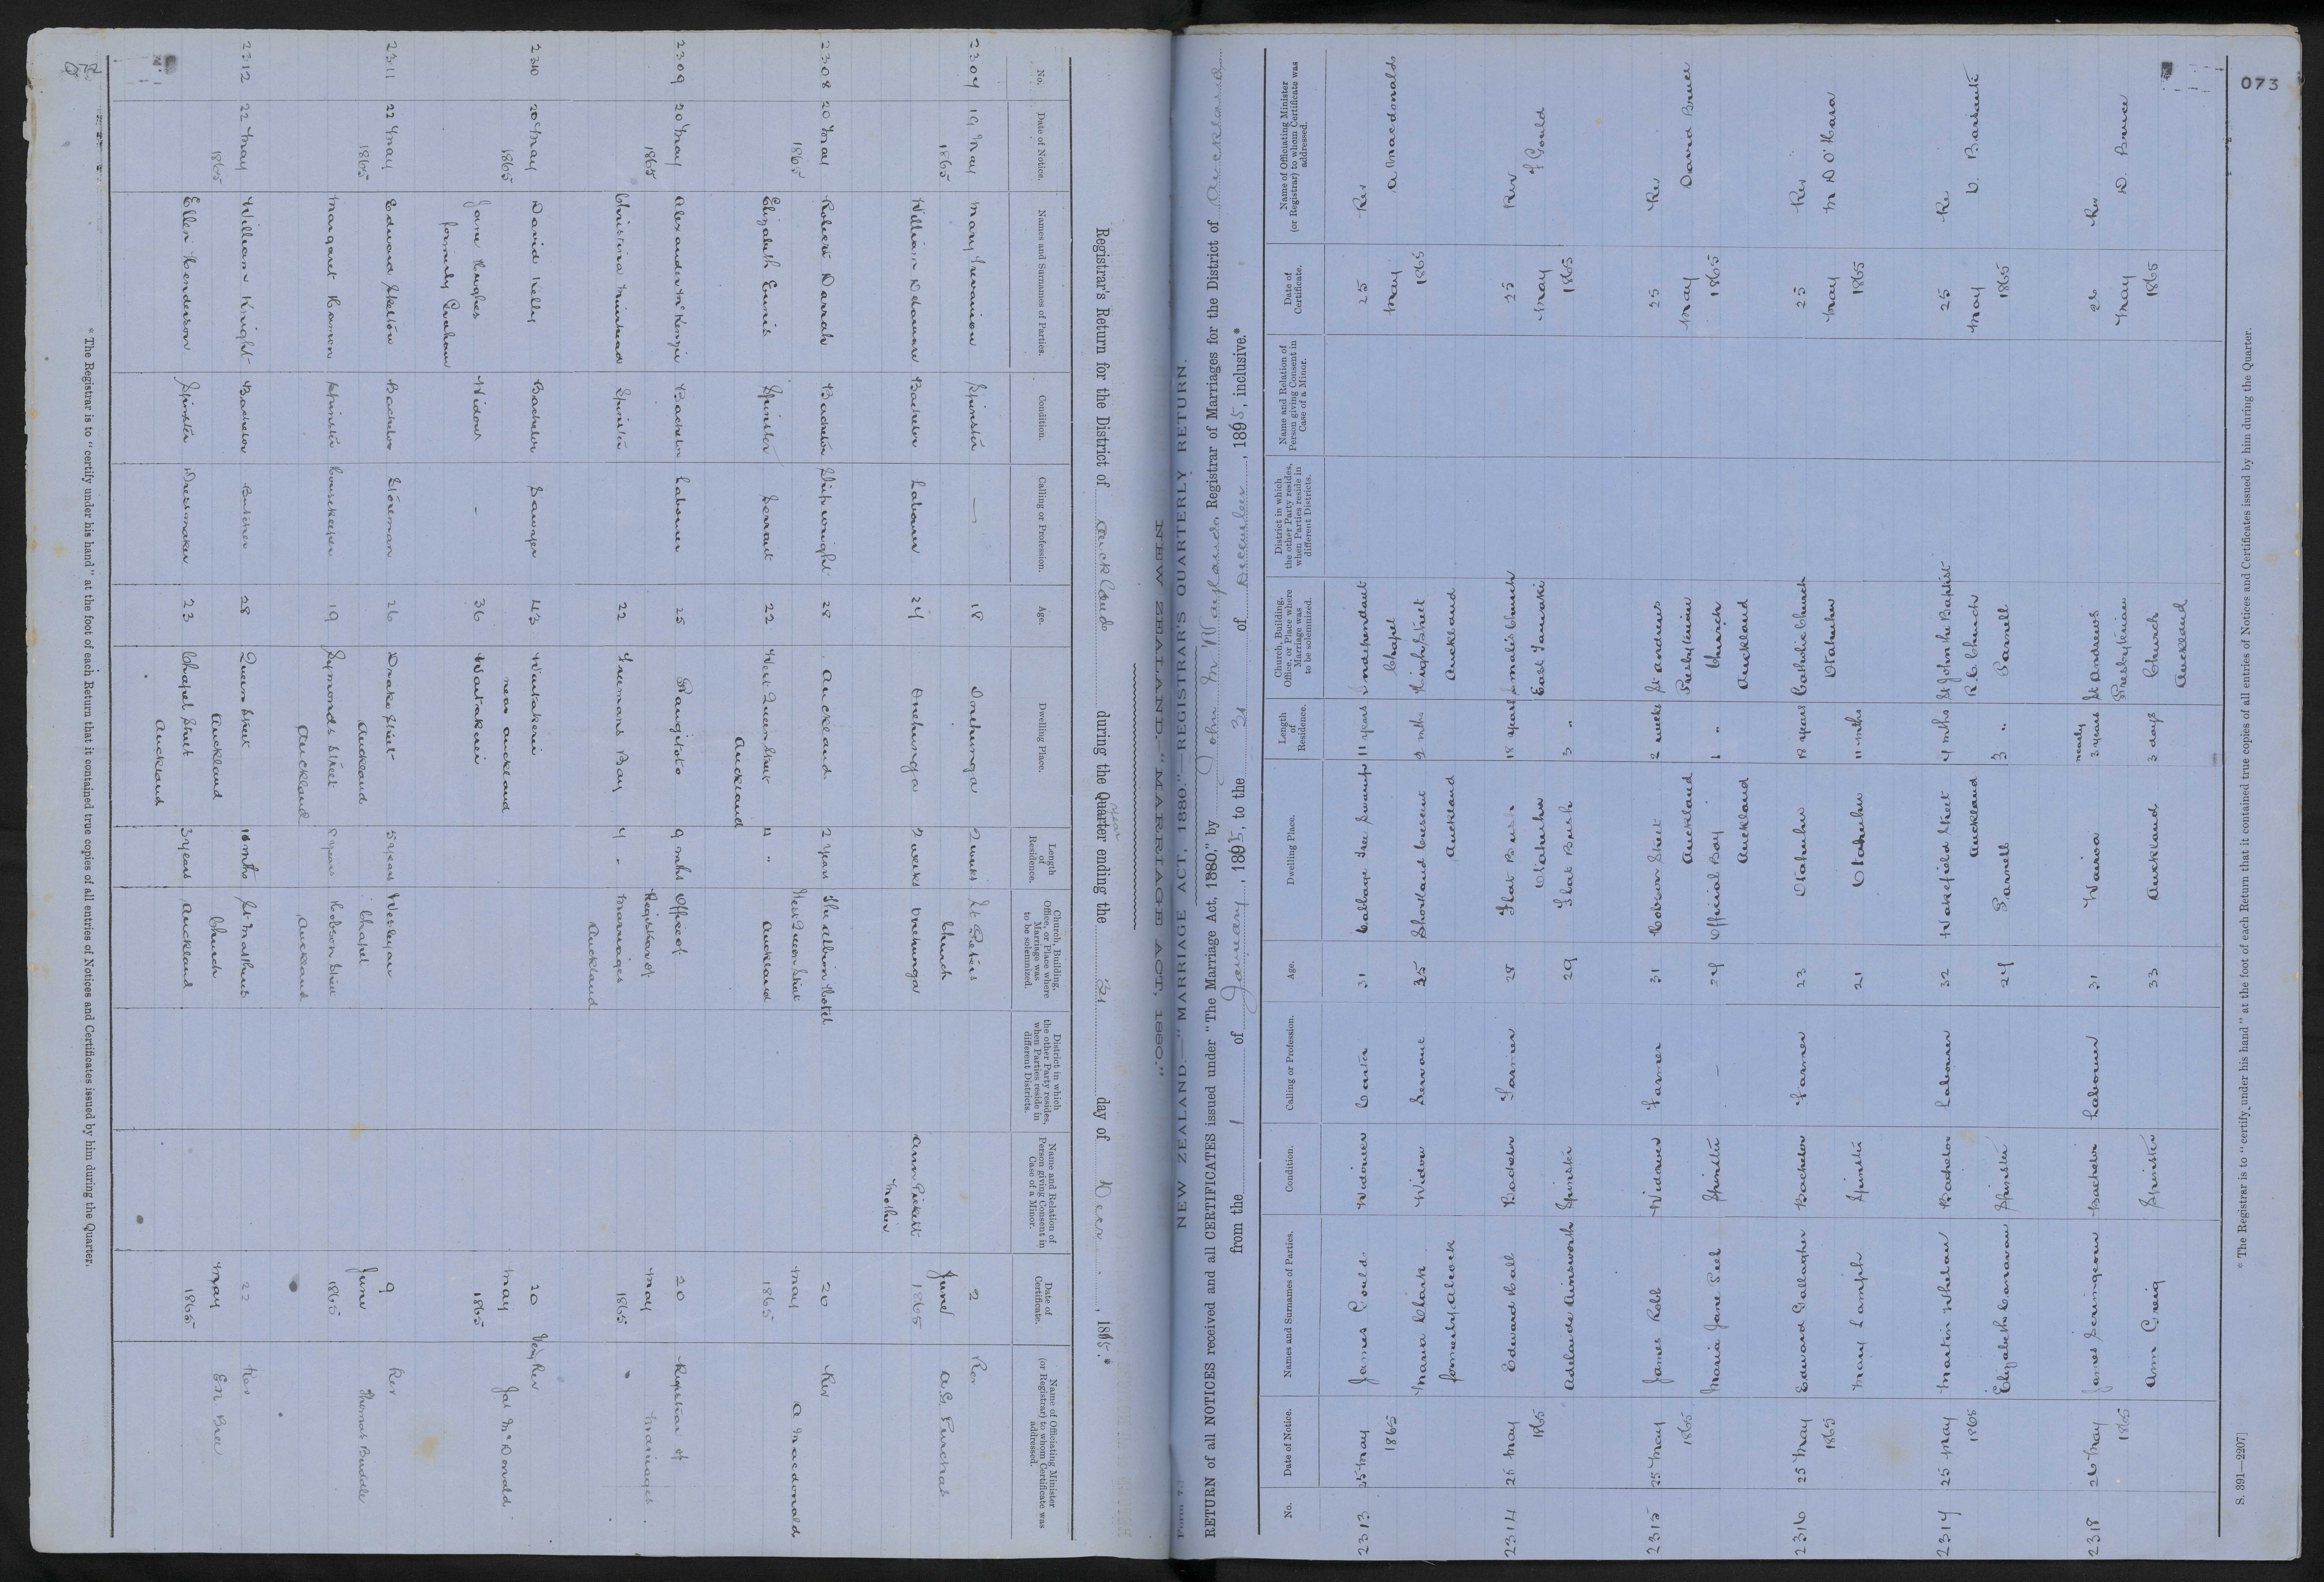 NEW ZEALAND.—"MARRIAGE ACT, 1880."
Registrar's Return for the District of Auckland during the Quarter ending the 31 day of Decr, 1865.*
year
No.
Date of Notice.
Names and Surnames of Parties.
Condition.
Calling or Profession.
Age.
Dwelling Place.
Length of Residence.
Church, Building, Office, or Place where Marriage was to be solemnized.
District in which the other Party resides, when Parties reside in different Districts.
Name and Relation of Person giving Consent in Case of a Minor.
Date of Certificate.
Name of Officiating Minister (or Registrar) to whom Certificate was addressed.
2307 19 May Mary Trevanion Spinster — 18 Onehunga 2 weeks St Peters 2 Rev
1865 Church June A.G. Purchas
William Delamere Bachelor Labourer 24 Onehunga 2 weeks Onehunga Ann Pickett 1865
Mother
2308 20 May Robert Darrah Bachelor Shipwright 28 Auckland 2 years The Albion Hotel 20 Rev
1865 West Queen Street May A Macdonald
Elizabeth Ennis Spinster Servant 22 West Queen Street 11 " Auckland 1865
Auckland
2309 20 May Alexander McKenzie Bachelor Labourer 25 Rangitoto 9 mths Office of 20 Registrar of
1865 Registrar of May Marriages
Christina Muirhead Spinster 22 Freemans Bay 4 " Marriages 1865
Auckland
2310 20 May David Kelly Bachelor Sawyer 43 Waitakerei 20 Very Rev
1865 near Auckland May Jas McDonald
Jane Hughes Widow - 36 Waitakerei 1865
formerly
2311 22 May Edward Skelton Bachelor Storeman 26 Drake Street 5 years Wesleyan 9 Rev
1865 Auckland Chapel June Thomas Buddle
Margaret Hamon Spinster Housekeeper 19 Symonds Street 8 years Hobson Street 1865
Auckland Auckland
2312 22 May William Knight Bachelor Butcher 28 Queen Street 10 mths St Matthews 22 Rev
1865 Auckland Church May
Ellen Henderson Spinster Dressmaker 23 Chapel Street 3 years Auckland 1865
Auckland
* The Registrar is to "certify under his hand" at the foot of each Return that it contained true copies of all entries of Notices and Certificates issued by him during the Quarter.
Form 7.
NEW ZEALAND.—"MARRIAGE ACT, 1880."—REGISTRAR'S QUARTERLY RETURN.
RETURN of all NOTICES received and all CERTIFICATES issued under "The Marriage Act, 1880," by John M Wayland, Registrar of Marriages for the District of Auckland
from the 1 of January, 1865, to the 31 of December, 1865, inclusive.*
No.
Date of Notice.
Names and Surnames of Parties.
Condition.
Calling or Profession.
Age.
Dwelling Place.
Length of Residence.
Church, Building, Office, or Place where Marriage was to be solemnized.
District in which the other Party resides, when Parties reside in different Districts.
Name and Relation of Person giving Consent in Case of a Minor.
Date of Certificate.
Name of Officiating Minister (or Registrar) to whom Certificate was addressed.
2313 25 May James Gould Widower Carter 31 Cabbage Tree Swamp 11 years Independant 25 Rev
1865 Chapel May A Macdonald
Maria Clark Widow Servant 35 Shortland Crescent 9 mths High Street 1865
formerly Alcock Auckland Auckland
2314 25 May Edward Hall Bachelor Farmer 28 Flat Bush 18 years Smales Church 25 Rev
1865 Otahuhu East Tamaki May F Gould
Adelaide Ainsworth Spinster 29 Flat Bush 3 " 1865
2315 25 May James Robb Widower Farmer 31 Hobson Street 2 weeks St Andrews 25 Rev
1865 Auckland Presbyterian May David Bruce
Maria Jane Peel Spinster — 24 Official Bay 1 " Church 1865
Auckland Auckland
2316 25 May Edward Gallagher Bachelor Farmer 23 Otahuhu 18 years Catholic Church 25 Rev
1865 Otahuhu May M D O'Hara
Mary Lamph Spinster 21 Otahuhu 11 mths 1865
2317 25 May Martin Whelan Bachelor Labourer 32 Wakefield Street 4 mths St John the Baptist 25 Rev
1865 Auckland R.C. Church May
Elizabeth Canavan Spinster 24 Parnell 3 " Parnell 1865
2318 26 May James Scrimgeour Bachelor Labourer 31 Wairoa nearly 2 years St Andrews 26 Rev
1865 Presbyterian May D. Bruce
Ann Greig Spinster 33 Auckland 3 days Church 1865
Auckland
* The Registrar is to "certify under his hand" at the foot of each Return that it contained true copies of all entries of Notices and Certificates issued by him during the Quarter.
S. 391—2207]
073